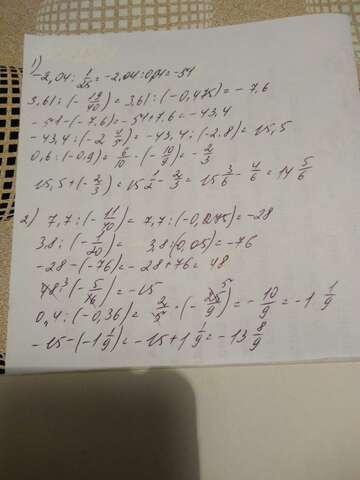 1)
-2,04 : 1/25 = -2,04 : 0,04 = -51
3,61 : (- 19/40) = 3,61 : (-0,475) = -7,6
-51 - (-7,6) = -51 + 7,6 = -43,4
-43,4 : (-2 4/5) = -43,4 : (-2,8) = 15,5
0,6 : (-0,9) = 6/10 · (- 10/9) = - 2/3
15,5 + (- 2/3) = 15 1/2 - 2/3 = 15 3/6 - 4/6 = 14 5/6
2) 7,7 : (- 11/40) = 7,7 : (-0,275) = -28
3,8 : (- 1/20) = 3,8 : (0,05) = -76
-28 - (-76) = -28 + 76 = 48
48 3 (- 5/16) = -15
0,4 : (-0,36) = 2/5 · (- 25/9 5) = - 10/9 = -1 1/9
-15 - (-1 1/9) = -15 + 1 1/9 = -13 8/9